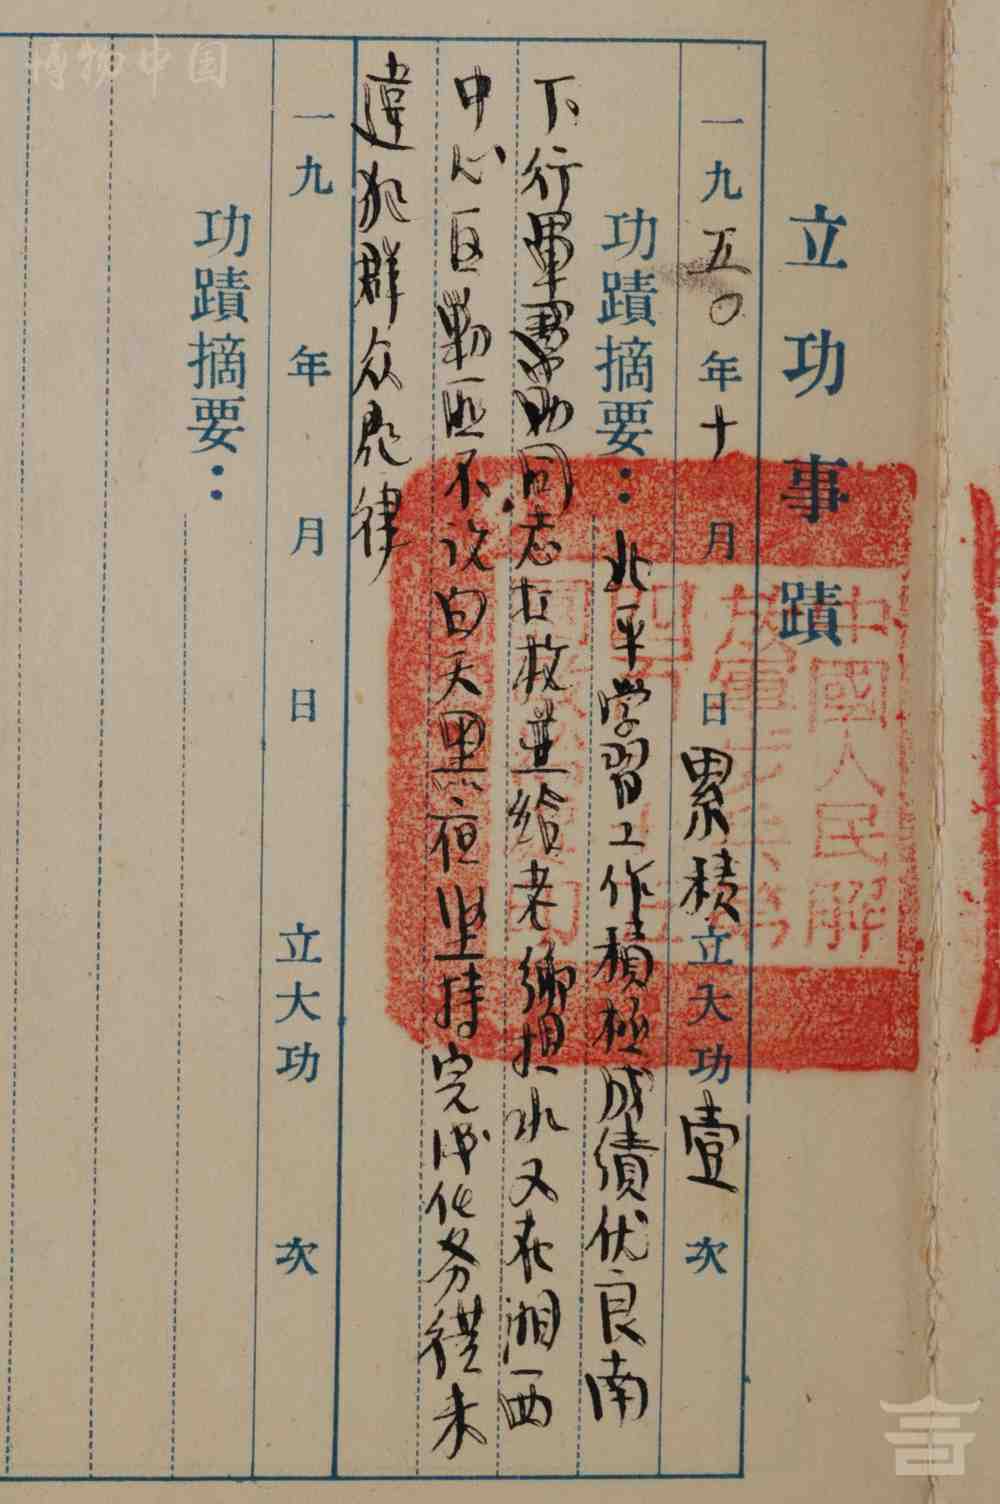 立功事蹟
一九五〇年十月 日累積立大功壹次
功蹟摘要：北平学習工作積極成績优良南
下行軍帮助同志扛枚並給老鄉担水又在湘西
中心区勦匪不论白天黑夜坚持完成任务從未
違犯群众紀律
一九 年 月 日 立大功 次
功蹟摘要：
中國人民解
放軍
博物中国